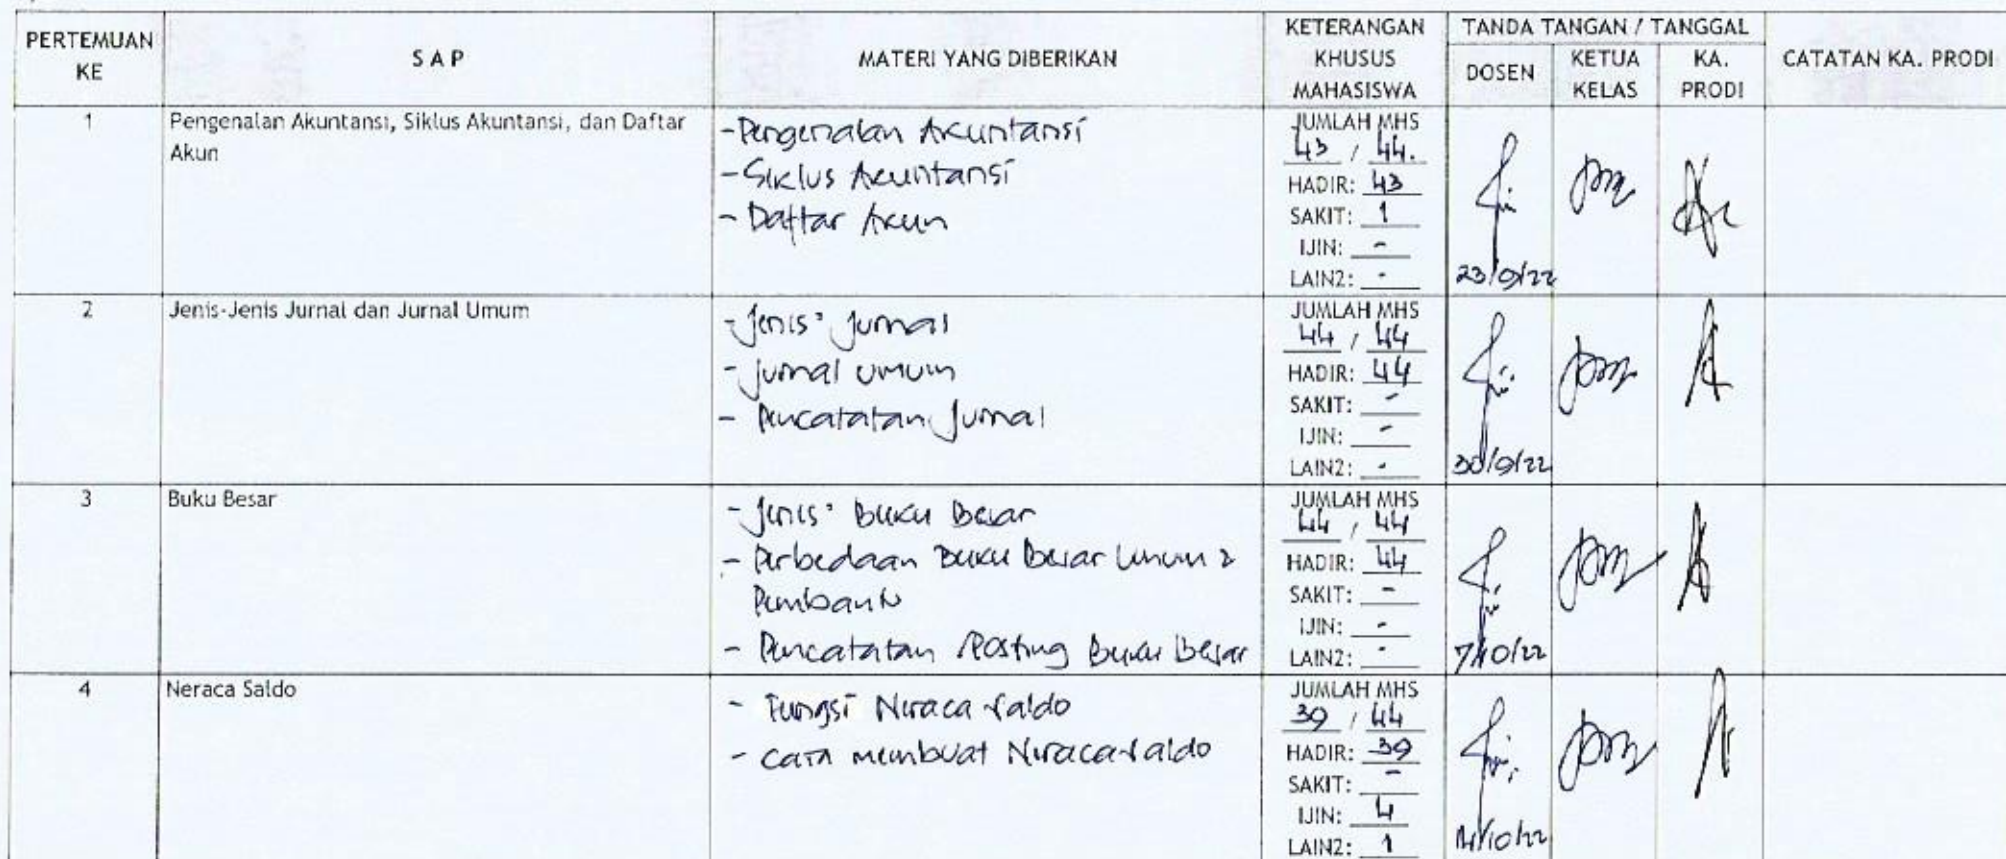 PERTEMUAN KE
S A P
MATERI YANG DIBERIKAN
KETERANGAN KHUSUS MAHASISWA
TANDA TANGAN / TANGGAL
DOSEN
KETUA KELAS
KA. PRODI
CATATAN KA. PRODI
1
Pengenalan Akuntansi, Siklus Akuntansi, dan Daftar
Akun
- Pengenalan Akuntansi
- Siklus Akuntansi
- Daftar Akun
JUMLAH MHS
43 / 44.
HADIR: 43
SAKIT: 1
IJIN: -
LAIN2: -
23/9/22
2
Jenis-Jenis Jurnal dan Jurnal Umum
- Jenis² Jurnal
- Jurnal Umum
- Pencatatan Jurnal
JUMLAH MHS
44 / 44
HADIR: 44
SAKIT: -
IJIN: -
LAIN2: -
30/9/22
3
Buku Besar
- Jenis² Buku Besar
- Perbedaan Buku Besar Umum &
Pembantu
- Pencatatan Posting Buku Besar
JUMLAH MHS
44 / 44
HADIR: 44
SAKIT: -
IJIN: -
LAIN2: -
7/10/22
4
Neraca Saldo
- Fungsi Neraca Saldo
- Cara membuat Neraca Saldo
JUMLAH MHS
39 / 44
HADIR: 39
SAKIT: -
IJIN: 4
LAIN2: 1
14/10/22